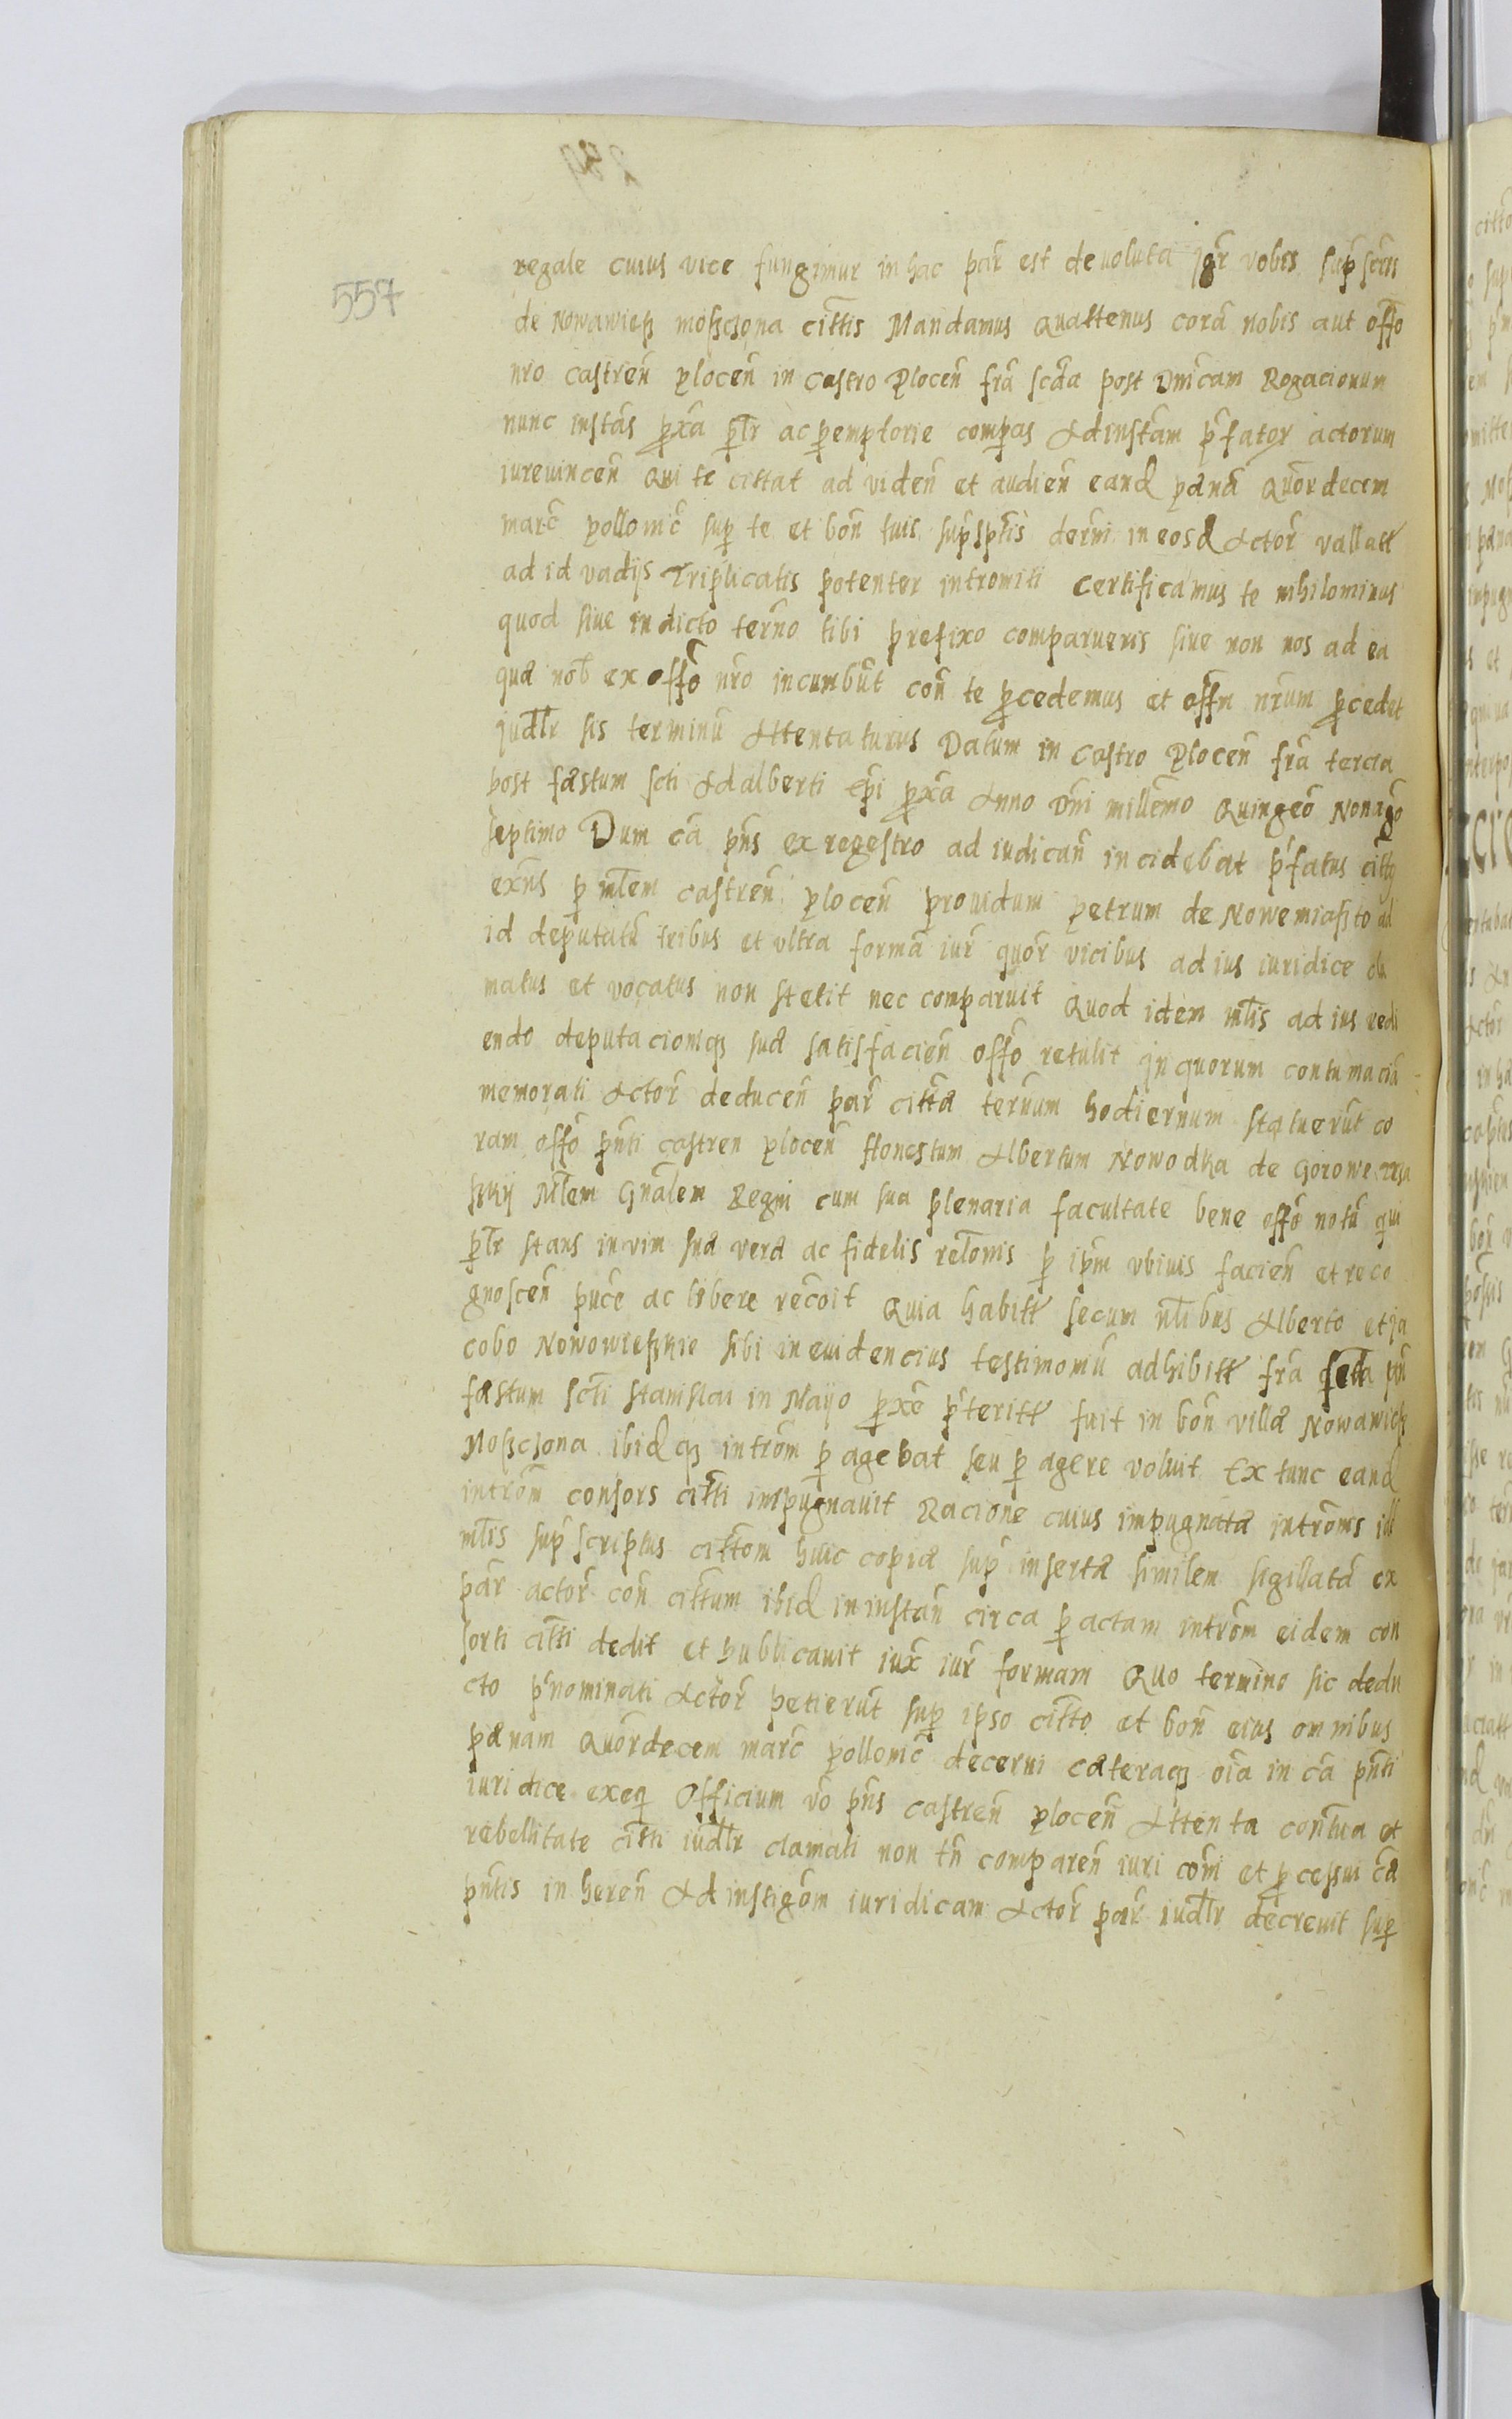 557
regale cuius vice fungimur in hac par̃ est deuoluta jgr̃ vobis sup̃ scr̃is
de Nowawiesz moszczona cittis Mandamus Quattenus corã nobis aut offo
nro castreñ ploceñ in Castro Ploceñ fr̃a scda post Dnicam Rogacionum
nunc instãs p̃xa p̃lr ac p̃emptorie comp̃as Ad instam p̃fator̃ actorum
iureuinceñ Qui te cittat ad videñ et audieñ eand pænã Quor̃decem
marc̃ pollonic̃ sup̃ te et boñ tuis sup̃sp̃tis derni in eosd Actor̃ vallatt
ad id vadijs Triplicatis potenter intromiti Certificamus te nihilominus
quod siue in dicto terño tibi prefixo comparueris siue non nos ad ea
quæ nob ex offo nro incumbũt coñ te p̃cedemus et offm nrum p̃cedet
judlr sis terminũ Attentaturus Datum in Castro Ploceñ fr̃a tercia
post fæstum scti Adalberti Ep̃i p̃xa Anno Dñi millemo Quingeõ Nonago
septimo Dum cã pñs ex regestro ad iudicañ incidebat p̃fatus
exñs p̃ mlem castreñ ploceñ prouidum petrum de Nowemiasto ad
id deputatũ tribus et vltra formã iur̃ quor̃ vicibus ad ius iuridice cla
matus et vocatus non stetit nec comparuit Quod idem mlis ad ius redi
endo deputacioniq; suæ satisfacieñ offo retulit jn quorum contumaciã
memorati Actor̃ deduceñ par̃ cittæ terñum hodiernum statuerũt co
ram offo p̃nti castren ploceñ Honestum Albertum Nowodka de
Mlem Gñalem Regni cum sua plenaria facultate bene offo notũ qui
p̃lr stans in vim suæ veræ ac fidelis relonis p̃ ip̃m vbiuis facieñ et reco
gnosceñ puce ac libere recoit Quia habitt secum nlibus Alberto et ja
cobo Nowowieskie sibi in euidencius testimoniũ adhibitt fr̃a
fæstum scti stanislai in Mayo p̃xe p̃teritt fuit in boñ villæ Nowawiesz
Moszczona ibidq; introm p̃ agebat seu p̃ agere voluit Ex tunc eand
introm consors citti impugnauit Racione cuius impugnatæ introis
mlis sup̃ scriptus cittom huic copiæ sup̃ insertæ similem sigillatã ex
par̃ actor̃ coñ cittum ibid in instañ circa p̃ actam introm eidem con
sorti citti dedit et publicauit iux̃ iur̃ formam Quo termino sic dedu
cto p̃nominati Actor̃ petierũt sup̃ ipso citto et boñ eius omnibus
pænam Quor̃decem marc̃ pollonic̃ decerni cæteraq; oĩa in cã p̃nti
iuridice exeq̃ Officium vo pñs castreñ ploceñ Attenta contuã et
rebellitate citti iudlr clamati non tñ compareñ iuri comi et p̃cessui cæ
p̃ntis in hereñ Ad instigom iuridicam Actor̃ par̃ iudlr decreuit sup̃